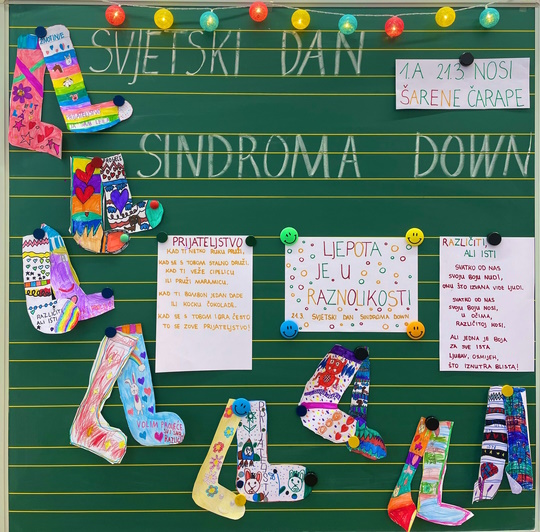 SVJETSKI DAN
1.A 21.3 NOSI
ŠARENE ČARAPE
SINDROMA DOWN
PRIJATELJSTVO
KAD TI NETKO RUKU PRUŽI,
KAD SE S TOBOM STALNO DRUŽI,
KAD TI VEŽE CIPELICU
ILI PRUŽI MARAMICU.
KAD TI BOMBON JEDAN DADE
ILI KOCKU ČOKOLADE.
KAD SE S TOBOM IGRA ČESTO
TO SE ZOVE PRIJATELJSTVO!
LJEPOTA
JE U
RAZNOLIKOSTI
21.3. SVJETSKI DAN SINDROMA DOWN
RAZLIČITI,
ALI ISTI
SVATKO OD NAS
SVOJU BOJU NUDI,
ONU ŠTO IZVANA VIDE LJUDI.
SVATKO OD NAS
SVOJU BOJU NOSI,
U OČIMA,
RAZLIČITOJ KOSI.
ALI JEDNA JE BOJA
ZA SVE ISTA
LJUBAV, OSMIJEH,
ŠTO IZNUTRA BLISTA!
RAZLIČITI
ALI ISTI
VOLIM